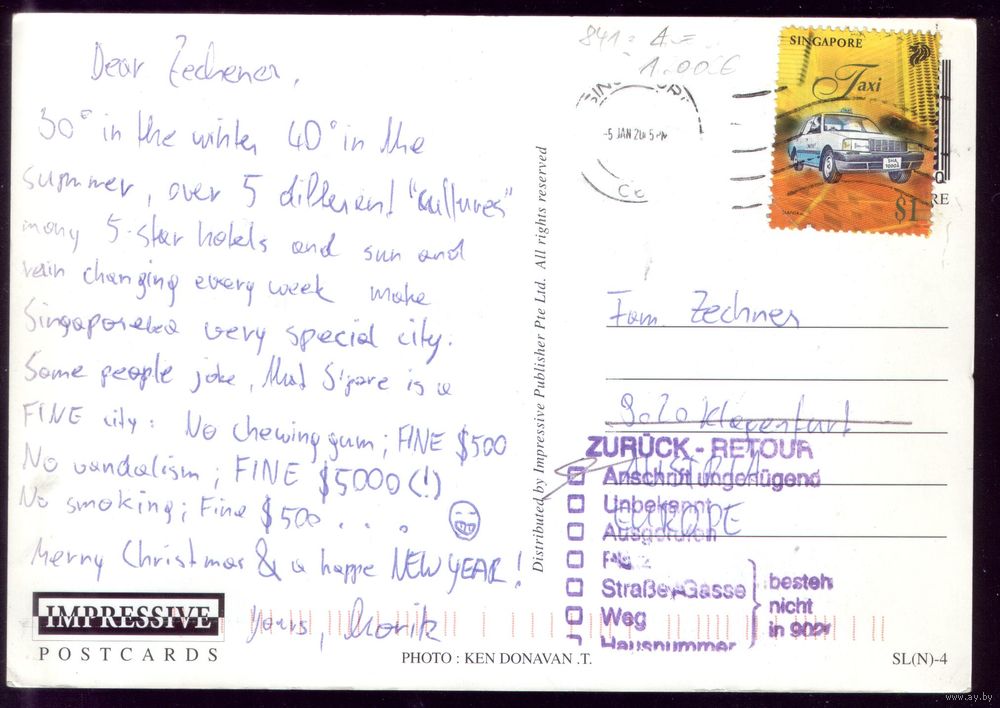 Dear Zechner,
30° in the winter 40° in the
summer, over 5 different "cultures"
many 5-star hotels and sun and
rain changing every week make
Singapore a very special city.
Some people joke, that S'pore is a
FINE city: No chewing gum; FINE $500
No vandalism; FINE $5000 (!)
No smoking; Fine $500 . . . .
Merry Christmas & a happe NEW YEAR!
Yours, Moritz
IMPRESSIVE
POSTCARDS
PHOTO : KEN DONAVAN .T.
SL(N)-4
Distributed by Impressive Publisher Pte Ltd. All rights reserved
841
1.00€
5 JAN
SINGAPORE
Taxi
SHA
$1
RE
Fam. Zechner
9020 Klagenfurt
AUSTRIA
EUROPE
ZURÜCK - RETOUR
Anschrift ungenügend
Unbekannt
Straße-Gasse
Weg
Hausnummer
besteh
nicht
in 902
www.ay.by